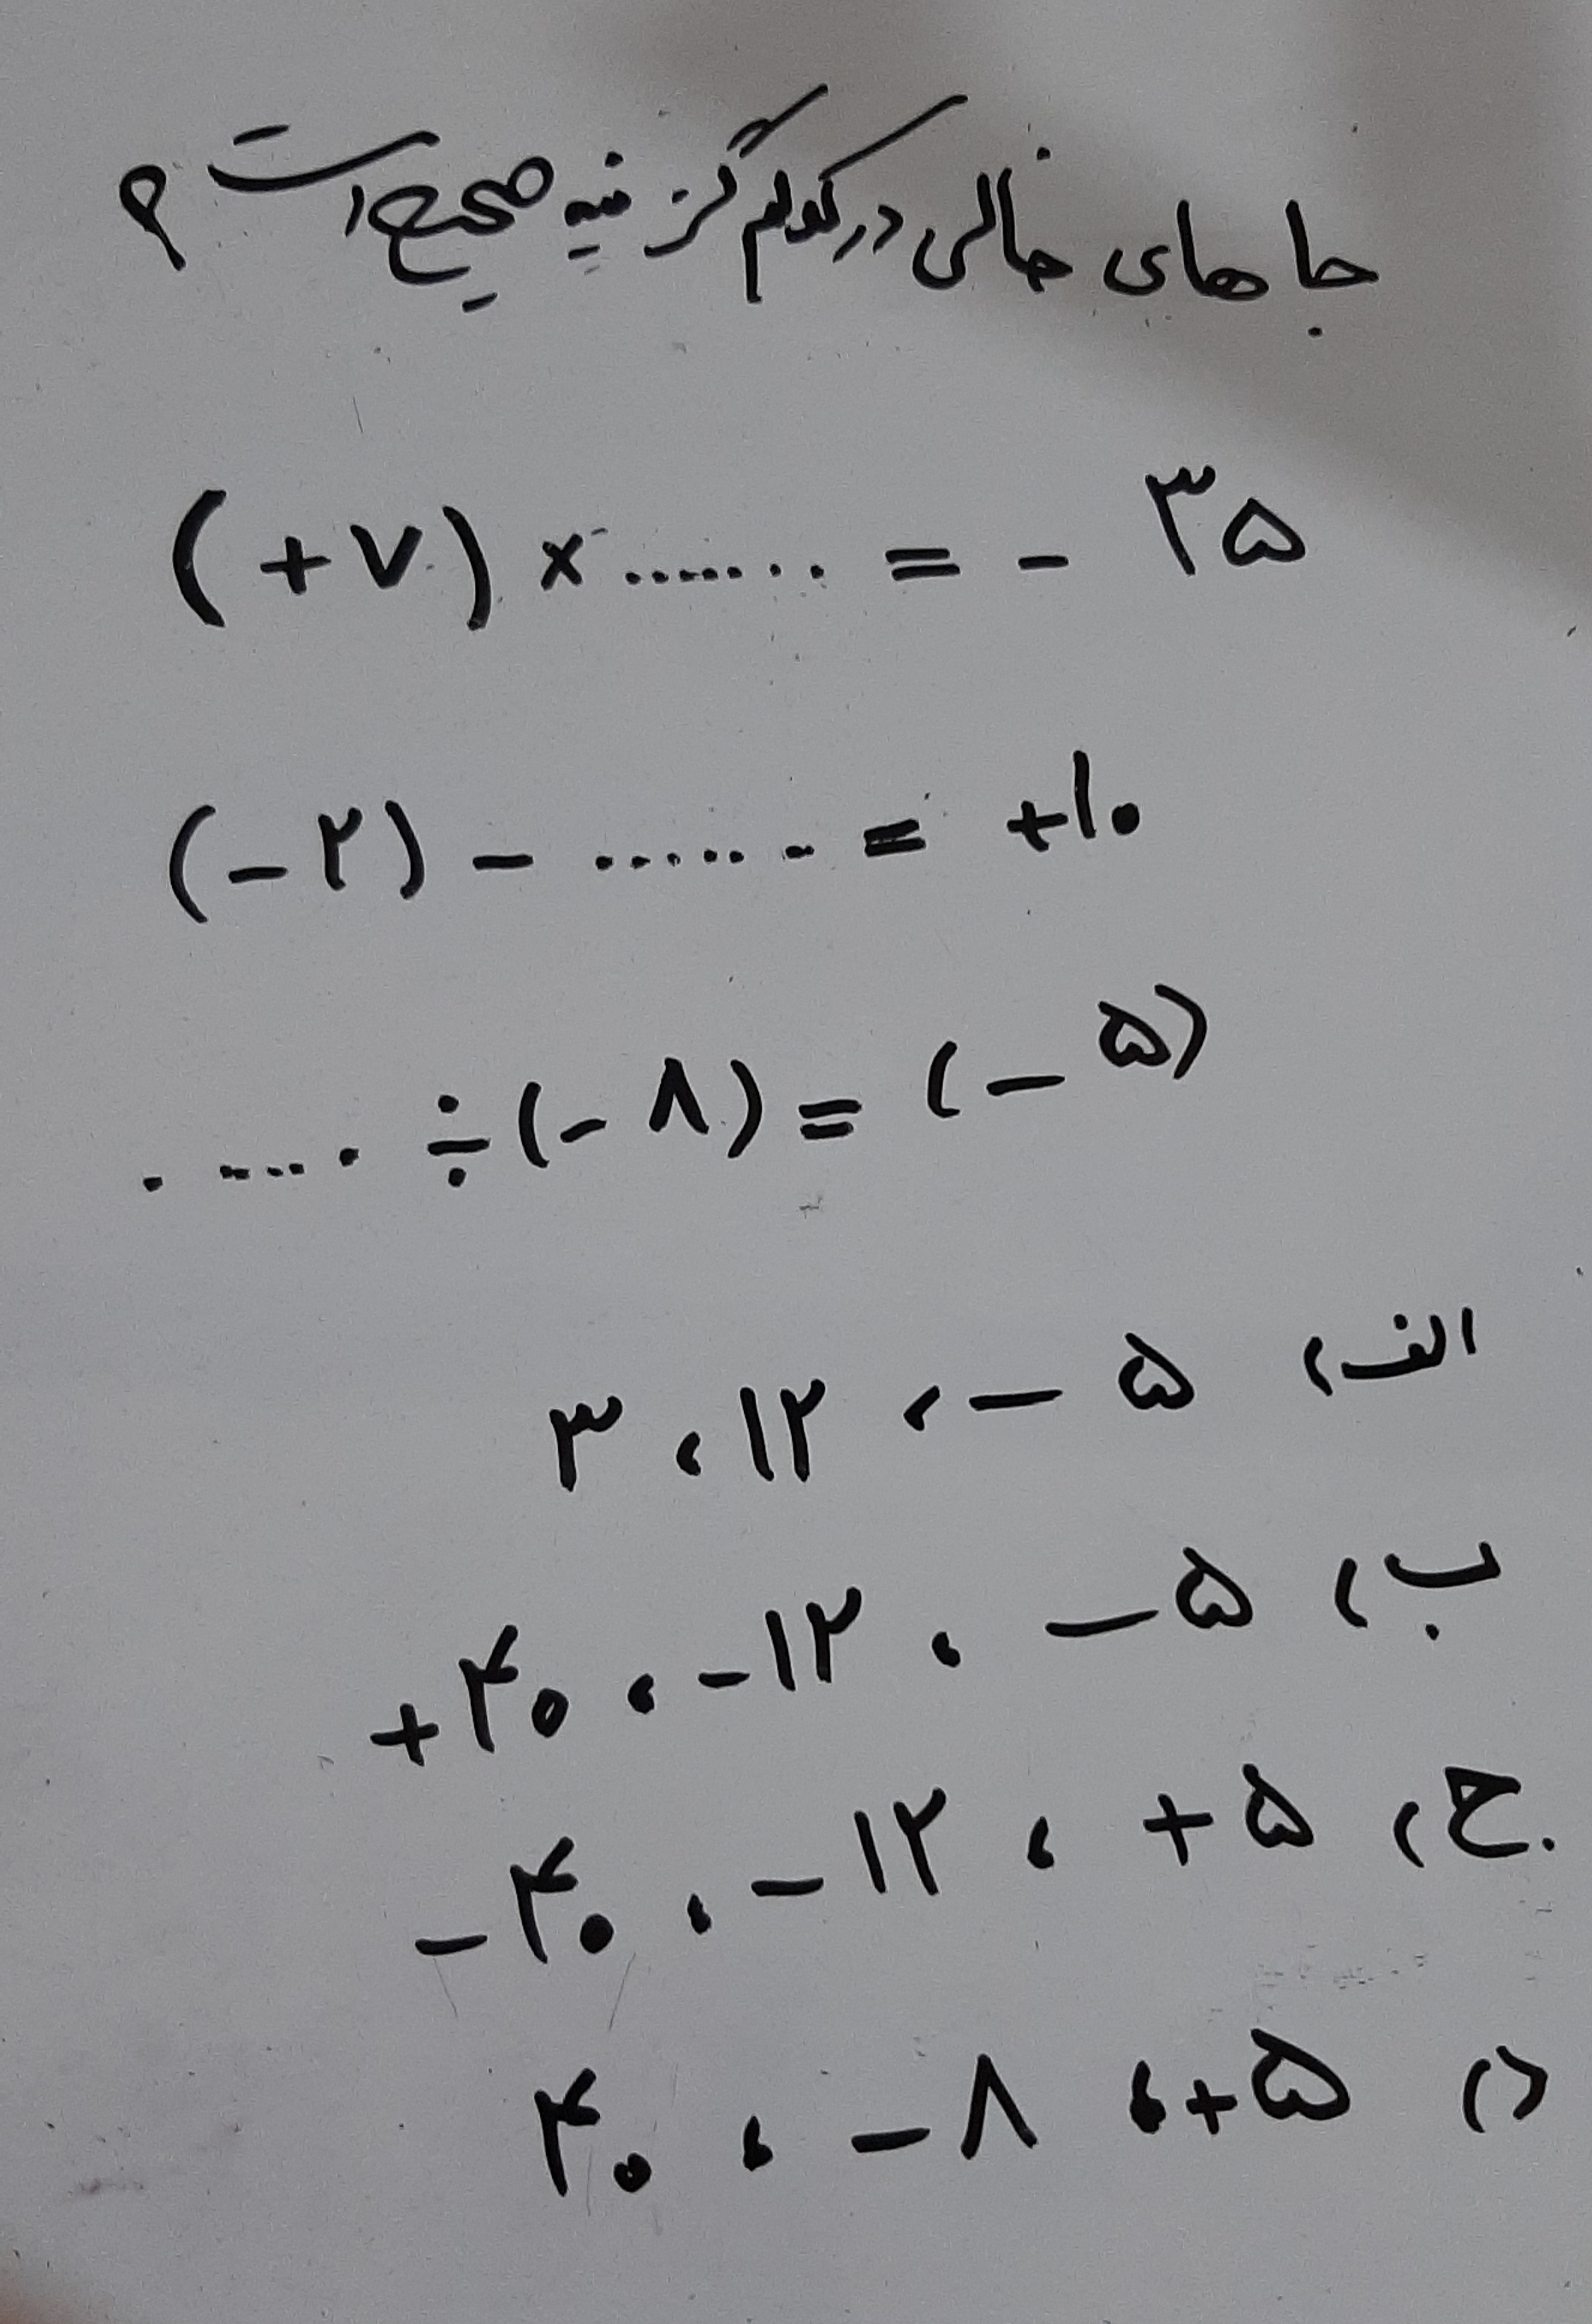 جا های خالی در کدام گزنیه صحیح است ؟
(+۷) × ....... = - ۳۵
(-۲) - ....... = +۱۰
...... ÷ (-۸) = (-۵)
الف) -۵ ، ۱۲ ، ۳
ب) -۵ ، -۱۲ ، +۴۰
ج) +۵ ، -۱۲ ، -۴۰
د) +۵ ، -۸ ، ۴۰